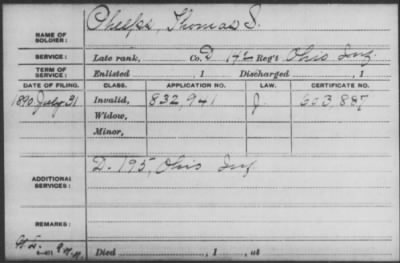 NAME OF SOLDIER: Phelps, Thomas S.
SERVICE: Late rank, Co. D 142 Reg't Ohio Inf
TERM OF SERVICE: Enlisted , 1 Discharged , 1
DATE OF FILING. CLASS. APPLICATION NO. LAW. CERTIFICATE NO.
1890 July 31 Invalid, 832,941 J. 603,887
Widow,
Minor,
ADDITIONAL SERVICES: D. 195, Ohio Inf
REMARKS:
Died , 1 , at